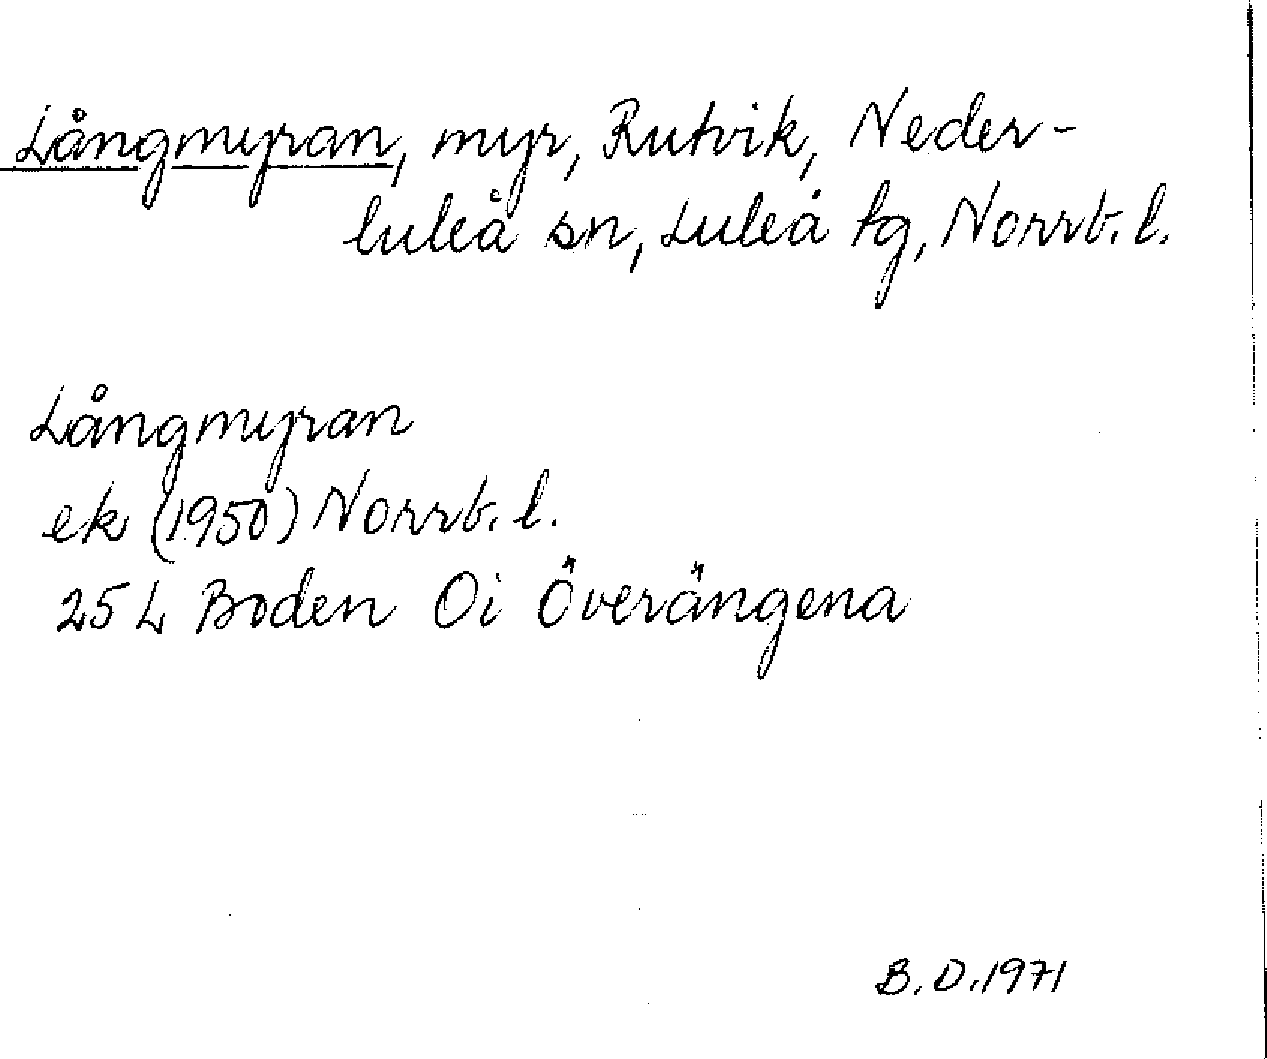 Långmyran, myr, Rutvik, Neder-
luleå sn, Luleå tg, Norrb. l.
Långmyran
ek (1950) Norrb. l.
25 L Boden Oi Överängena
B. D. 1971